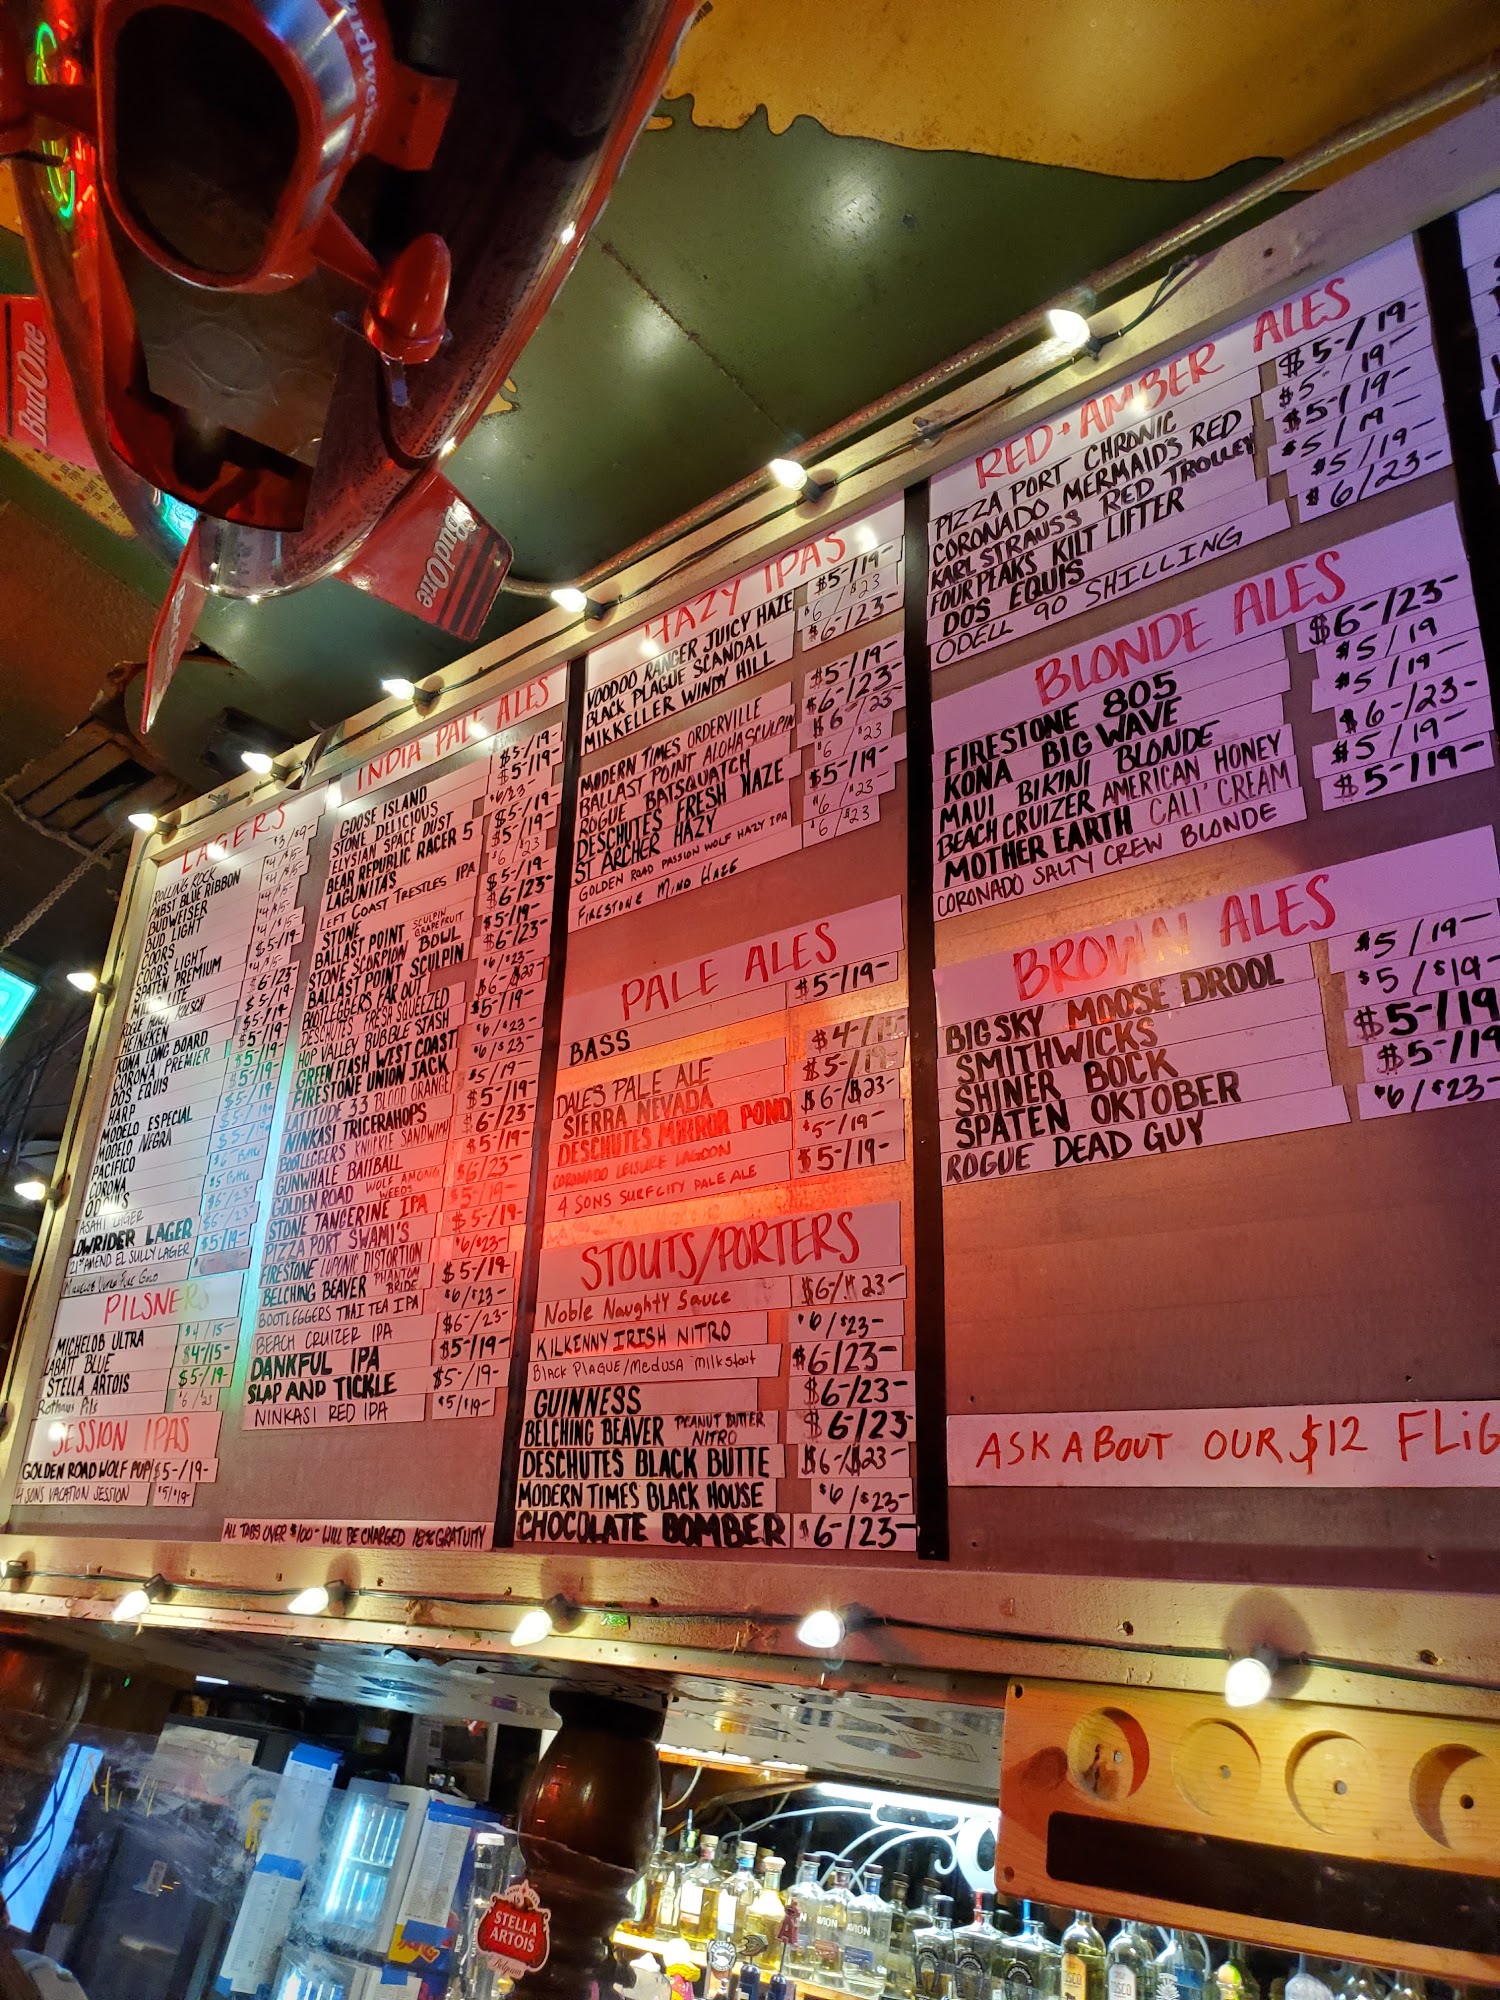 Budweiser
BudOne
BudOne
LAGERS
ROLLING ROCK $3/$9-
PABST BLUE RIBBON $4/$15-
BUDWEISER
BUD LIGHT
COORS
COORS LIGHT $5-/19-
SPATEN PREMIUM
MILLER LITE
ROGUE HONEY KOLSCH $6/23-
HEINEKEN $5/19-
KONA LONG BOARD $5-/19-
CORONA PREMIER $5-/19-
DOS EQUIS $5-/19-
HARP $5-/19-
MODELO ESPECIAL $5-/19-
MODELO NEGRA
PACIFICO
CORONA
ODOUL'S
ASAHI LAGER
LOWRIDER LAGER
21ST AMEND. EL SULLY LAGER $5-/19-
PILSNERS
MICHELOB ULTRA $4/15-
LABATT BLUE $4-/15-
STELLA ARTOIS $5-/19
Rothaus Pils $6/23
SESSION IPAS
GOLDEN ROAD WOLF PUP $5-/19-
4 SONS VACATION SESSION $5/$19-
INDIA PALE ALES
GOOSE ISLAND $5-/19-
STONE DELICIOUS $5-/19-
ELYSIAN SPACE DUST $6/23-
BEAR REPUBLIC RACER 5 $5-/19-
LAGUNITAS $5-/19-
LEFT COAST TRESTLES IPA $6/23
STONE $5-/19-
BALLAST POINT SCULPIN GRAPEFRUIT $6/23-
STONE SCORPION BOWL $5-/19-
BALLAST POINT SCULPIN $6/23-
BOOTLEGGERS FAR OUT $6/$23-
DESCHUTES FRESH SQUEEZED $6-/$23-
HOP VALLEY BUBBLE STASH $5-/19-
GREEN FLASH WEST COAST $6/$23-
FIRESTONE UNION JACK $6/$23-
LATITUDE 33 BLOOD ORANGE $5/19-
NINKASI TRICERAHOPS $5-/19-
BOOTLEGGERS KNUCKLE SANDWICH $6/23-
GUNWHALE BAITBALL $5-/19-
GOLDEN ROAD WOLF AMONG WEEDS $6/23-
STONE TANGERINE IPA $5-/19-
PIZZA PORT SWAMI'S $5-/19
FIRESTONE LUPONIC DISTORTION $6/$23-
BELCHING BEAVER PHANTOM BRIDE $5-/19-
BOOTLEGGERS THAI TEA IPA $6/$23-
BEACH CRUIZER IPA $6-/23-
DANKFUL IPA $5-/19-
SLAP AND TICKLE $5-/19-
NINKASI RED IPA $5/$19-
ALL TABS OVER $100- WILL BE CHARGED 18% GRATUITY
HAZY IPAS
VOODOO RANGER JUICY HAZE $5-/19-
BLACK PLAGUE SCANDAL $6/$23
MIKKELLER WINDY HILL $6-/23-
MODERN TIMES ORDERVILLE $5-/19-
BALLAST POINT ALOHA SCULPIN $6-/23-
ROGUE BATSQUATCH $6/23-
DESCHUTES FRESH HAZE $6/$23
ST ARCHER HAZY $5-/19-
GOLDEN ROAD PASSION WOLF HAZY IPA $6/$23-
FIRESTONE MIND HAZE $6/$23
PALE ALES
BASS $5-/19-
DALES PALE ALE $4-/15-
SIERRA NEVADA $5-/19-
DESCHUTES MIRROR POND $6-/$23-
CORONADO LEISURE LAGOON $5-/19-
4 SONS SURF CITY PALE ALE $5-/19-
STOUTS/PORTERS
Noble Naughty Sauce $6-/$23-
KILKENNY IRISH NITRO $6/$23-
BLACK PLAGUE/MEDUSA milkstout $6/23-
GUINNESS $6-/23-
BELCHING BEAVER PEANUT BUTTER NITRO $6/23
DESCHUTES BLACK BUTTE $6-/$23-
MODERN TIMES BLACK HOUSE $6/$23-
CHOCOLATE BOMBER $6-/23-
RED + AMBER ALES
PIZZA PORT CHRONIC $5-/19-
CORONADO MERMAID'S RED $5-/19-
KARL STRAUSS RED TROLLEY $5-/19-
FOUR PEAKS KILT LIFTER $5/19-
DOS EQUIS $5/19-
ODELL 90 SHILLING $6/23-
BLONDE ALES
FIRESTONE 805 $6-/23-
KONA BIG WAVE $5/19
MAUI BIKINI BLONDE $5/19-
BEACH CRUIZER AMERICAN HONEY $6-/23-
MOTHER EARTH CALI' CREAM $5/19-
CORONADO SALTY CREW BLONDE $5-/19-
BROWN ALES
BIG SKY MOOSE DROOL $5/19-
SMITHWICKS $5/$19-
SHINER BOCK $5-/19
SPATEN OKTOBER $5-/19
ROGUE DEAD GUY $6/$23-
ASK ABOUT OUR $12 FLIG
STELLA
ARTOIS
Belgium